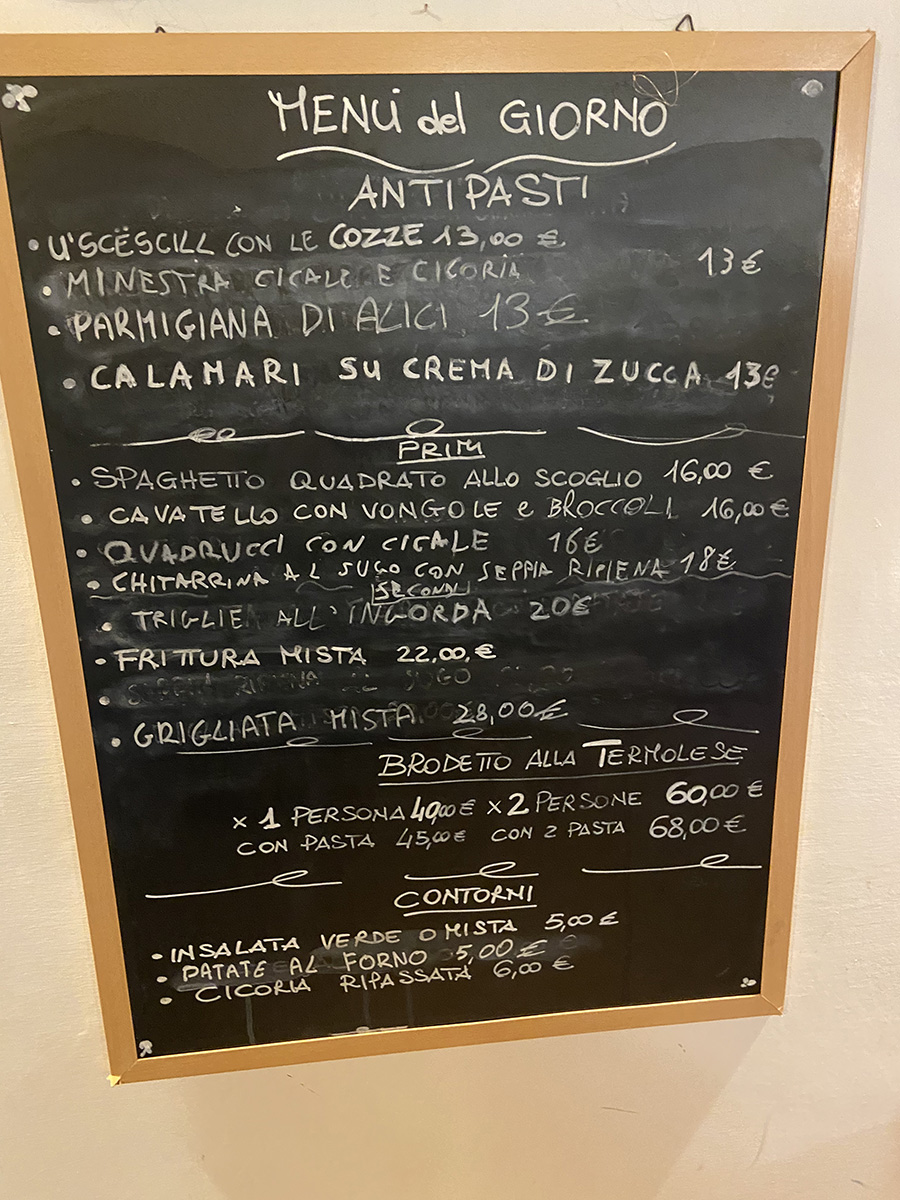 MENÚ del GIORNO
ANTIPASTI
• U'SCËSCILL CON LE COZZE 13,00 €
• MINESTRA CICALE E CICORIA 13€
• PARMIGIANA DI ALICI 13€
• CALAMARI SU CREMA DI ZUCCA 13€
PRIMI
• SPAGHETTO QUADRATO ALLO SCOGLIO 16,00 €
• CAVATELLO CON VONGOLE e BROCCOLI 16,00€
• QUADRUCCI CON CICALE 16€
• CHITARRINA AL SUGO CON SEPPIA RIPIENA 18€
SECONDI
• TRIGLIE ALL'INGORDA 20€
• FRITTURA MISTA 22,00,€
• RIPIENA SUGO
• GRIGLIATA MISTA 28,00€
BRODETTO ALLA TERMOLESE
x 1 PERSONA 40,00€ x 2 PERSONE 60,00 €
CON PASTA 45,00€ CON 2 PASTA 68,00€
CONTORNI
• INSALATA VERDE O MISTA 5,00 €
• PATATE AL FORNO 5,00 €
• CICORIA RIPASSATA 6,00 €